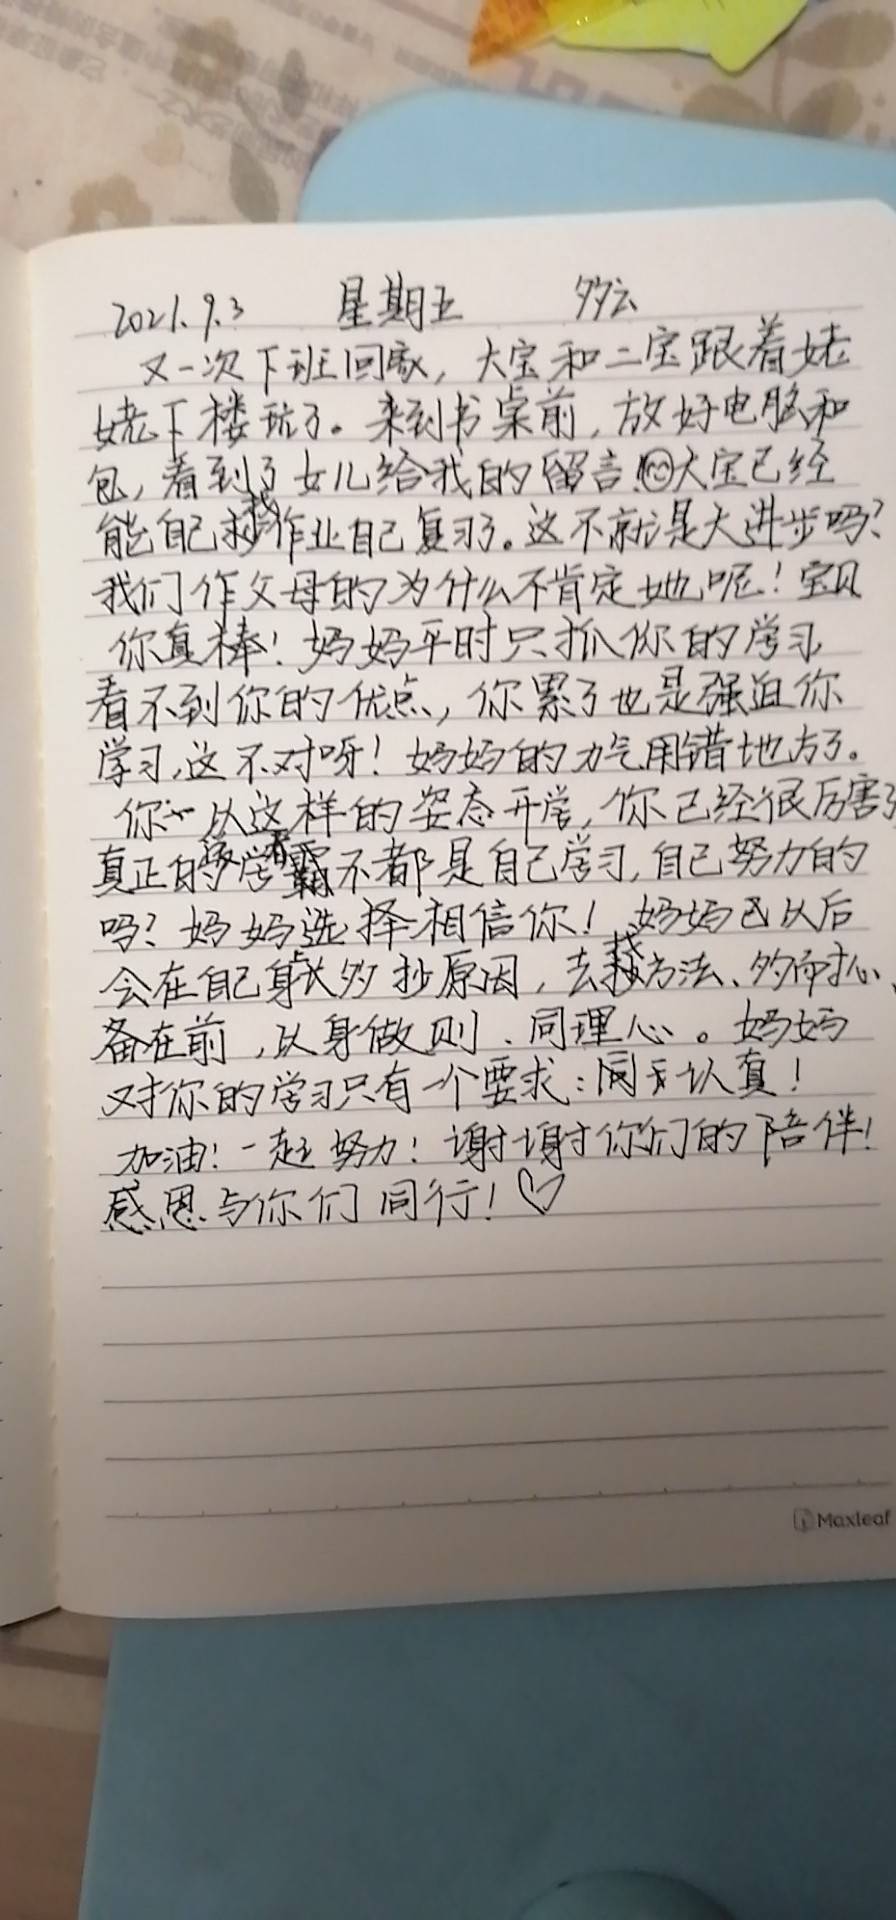 2021.9.3 星期五 多云
又一次下班回家，大宝和二宝跟着姥
姥下楼玩了。来到书桌前，放好电脑和
包，看到了女儿给我的留言！大宝已经
能自己找作业自己复习了。这不就是大进步吗？
我们作父母的为什么不肯定她呢！宝贝
你真棒！妈妈平时只抓你的学习
看不到你的优点，你累了也是强迫你
学习，这不对呀！妈妈的力气用错地方了。
你以这样的姿态开学，你已经很厉害了
真正的学霸不都是自己学习，自己努力的
吗？妈妈选择相信你！妈妈以后
会在自己身上多抄原因，去找方法、多耐心、
备在前，以身做则、同理心。妈妈
对你的学习只有一个要求：认真！
加油！一起努力！谢谢你们的陪伴！
感恩与你们同行！♡
Maxleaf